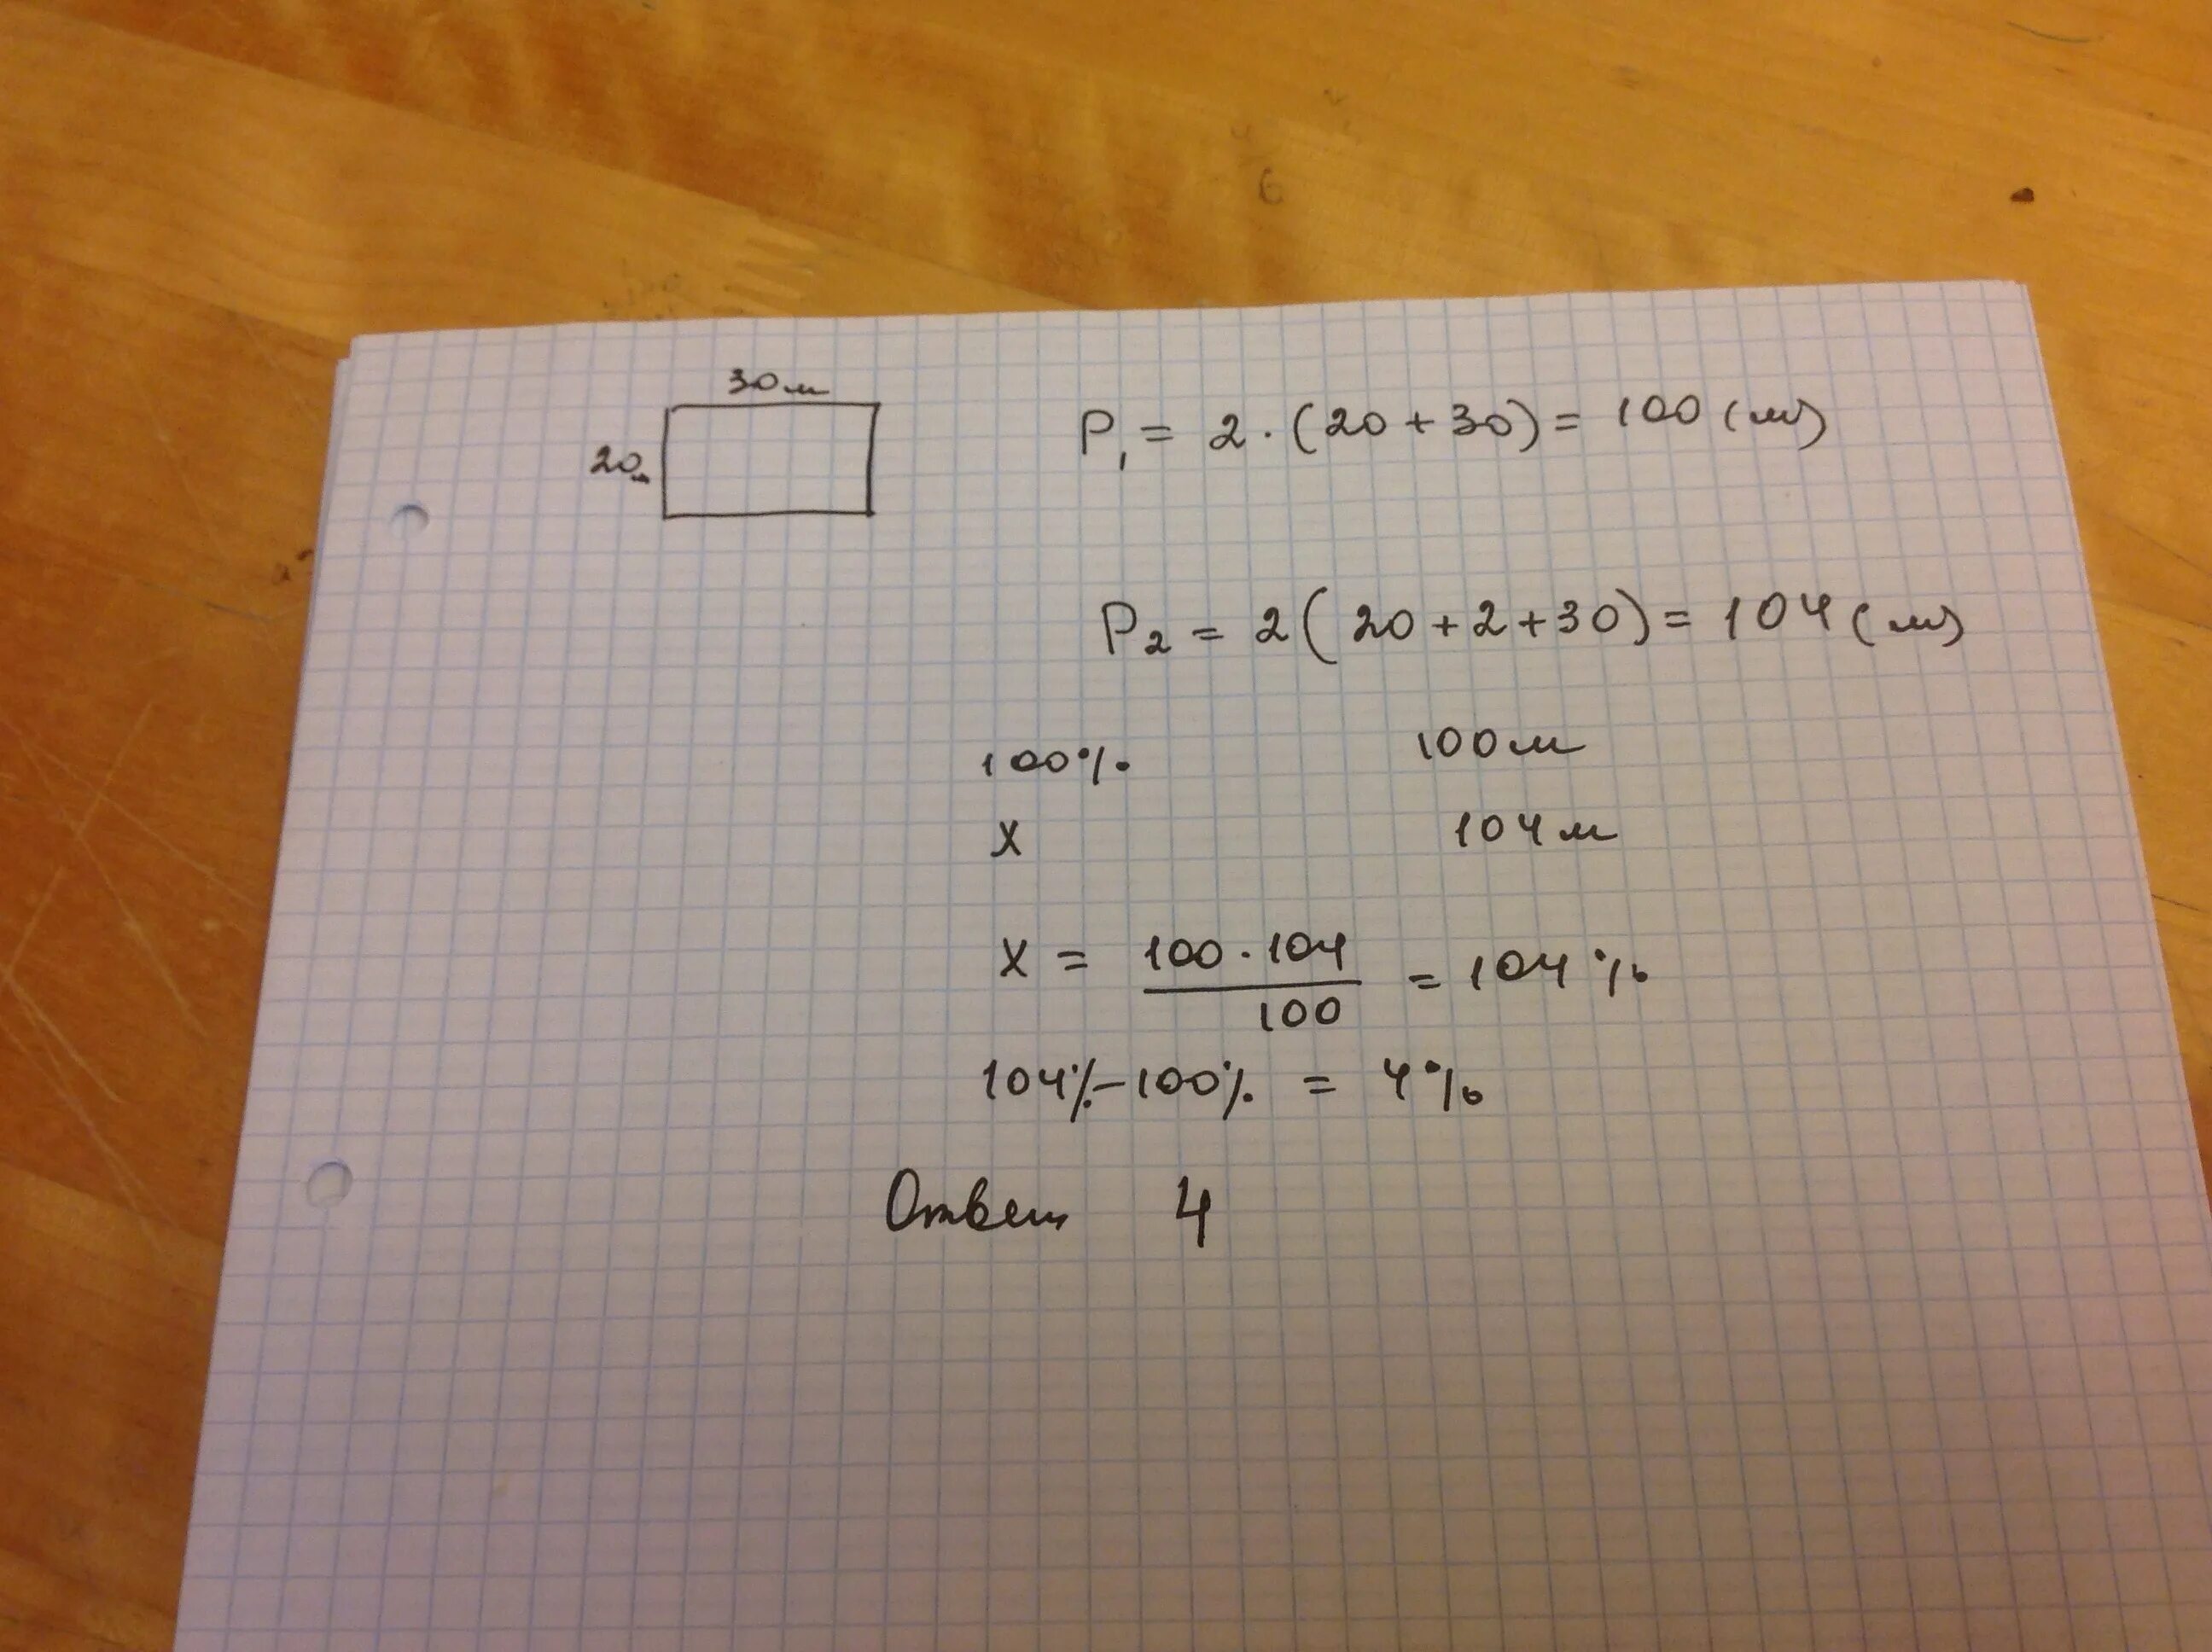 30м
20м
P₁ = 2 · (20 + 30) = 100 (м)
P₂ = 2 ( 20 + 2 + 30) = 104 (м)
100% 100м
х 104м
х = 100 · 104 / 100 = 104 %
104% – 100% = 4 %
Ответ 4